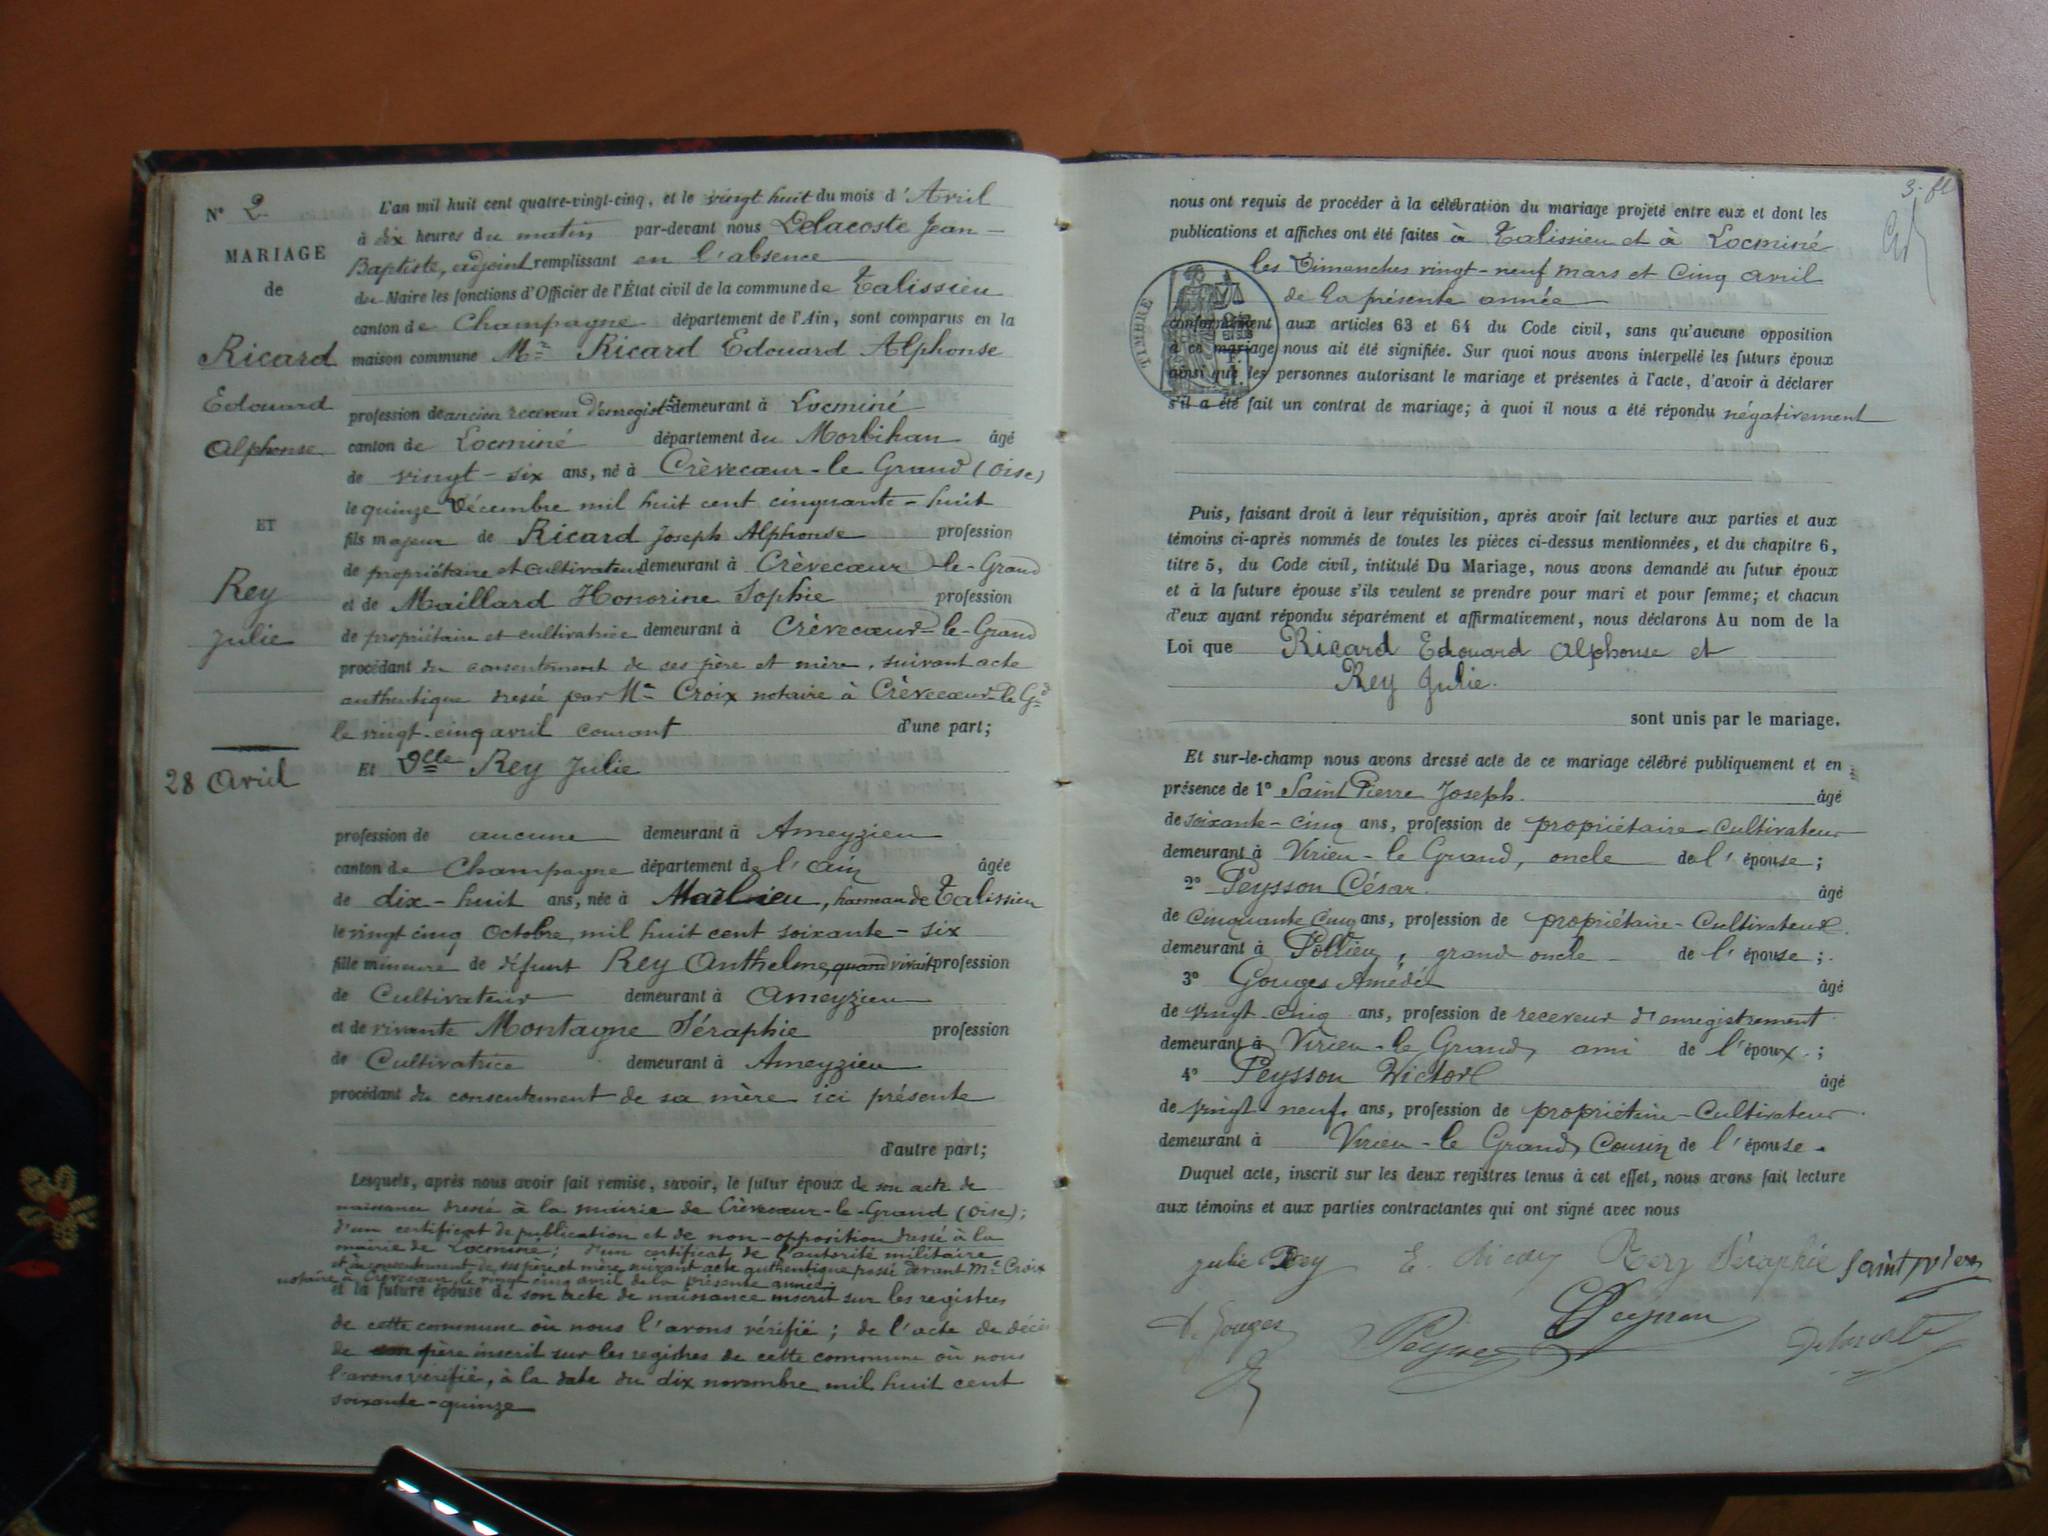 N° 2
MARIAGE
de
Ricard
Edouard
Alphonse
ET
Rey
Julie
28 Avril
L'an mil huit cent quatre-vingt-cinq, et le vingt huit du mois d'Avril
à dix heures du matin par-devant nous Delacoste Jean-
Baptiste, adjoint remplissant en l'absence
du Maire les fonctions d'Officier de l'État civil de la commune de Talissieu
canton de Champagne département de l'Ain, sont comparus en la
maison commune Mr Ricard Edouard Alphonse
profession de ancien receveur d'enregistt demeurant à Locminé
canton de Locminé département du Morbihan âgé
de vingt-six ans, né à Crèvecœur-le Grand (Oise)
le quinze Décembre mil huit cent cinquante-huit
fils majeur de Ricard Joseph Alphonse profession
de propriétaire et cultivateur demeurant à Crèvecœur-le-Grand
et de Maillard Honorine Sophie profession
de propriétaire et cultivatrice demeurant à Crèvecœur-le-Grand
procédant du consentement de ses père et mère, suivant acte
authentique dressé par Me Croix notaire à Crèvecœur-le Gd
le vingt-cinq avril courant d'une part;
Et Dlle Rey Julie
profession de aucune demeurant à Ameyzieu
canton de Champagne département de l'Ain âgée
de dix-huit ans, née à Marlieu, hameau de Talissieu
le vingt cinq Octobre mil huit cent soixante-six
fille mineure de défunt Rey Anthelme, quand vivait profession
de Cultivateur demeurant à Ameyzieu
et de vivante Montagne Séraphie profession
de Cultivatrice demeurant à Ameyzieu
procédant du consentement de sa mère ici présente
d'autre part;
Lesquels, après nous avoir fait remise, savoir, le futur époux de son acte de
naissance dressé à la mairie de Crèvecœur-le-Grand (Oise);
d'un certificat de publication et de non-opposition dressé à la
mairie de Locminé; d'un certificat de l'autorité militaire
et du consentement de ses père et mère suivant acte authentique passé devant Me Croix
notaire à Crèvecœur le vingt cinq avril de la présente année;
et la future épouse de son acte de naissance inscrit sur les registres
de cette commune où nous l'avons vérifié; de l'acte de décès
de son père inscrit sur les registres de cette commune où nous
l'avons vérifié, à la date du dix novembre mil huit cent
soixante-quinze
3.
nous ont requis de procéder à la célébration du mariage projeté entre eux et dont les
publications et affiches ont été faites à Talissieu et à Locminé
les Dimanches vingt-neuf mars et cinq avril
de la présente année
TIMBRE
conformément aux articles 63 et 64 du Code civil, sans qu'aucune opposition
à ce mariage nous ait été signifiée. Sur quoi nous avons interpellé les futurs époux
ainsi que les personnes autorisant le mariage et présentes à l'acte, d'avoir à déclarer
s'il a été fait un contrat de mariage; à quoi il nous a été répondu négativement
Puis, faisant droit à leur réquisition, après avoir fait lecture aux parties et aux
témoins ci-après nommés de toutes les pièces ci-dessus mentionnées, et du chapitre 6,
titre 5, du Code civil, intitulé Du Mariage, nous avons demandé au futur époux
et à la future épouse s'ils veulent se prendre pour mari et pour femme; et chacun
d'eux ayant répondu séparément et affirmativement, nous déclarons Au nom de la
Loi que Ricard Edouard Alphonse et
Rey Julie.
sont unis par le mariage.
Et sur-le-champ nous avons dressé acte de ce mariage célébré publiquement et en
présence de 1° Saint Pierre Joseph. âgé
de soixante-cinq ans, profession de propriétaire-Cultivateur
demeurant à Virieu-le Grand, oncle de l'épouse;
2° Peysson César. âgé
de cinquante cinq ans, profession de propriétaire-Cultivateur.
demeurant à Pollieu, grand oncle de l'épouse;
3° Gouges Amédée âgé
de vingt-cinq ans, profession de receveur d'enregistrement
demeurant à Virieu-le Grand, ami de l'époux.;
4° Peysson Victor âgé
de vingt neuf ans, profession de propriétaire-Cultivateur
demeurant à Virieu-le Grand, Cousin de l'épouse.
Duquel acte, inscrit sur les deux registres tenus à cet effet, nous avons fait lecture
aux témoins et aux parties contractantes qui ont signé avec nous
Julie Rey E. Ricard Rey Séraphie Saint pierre
A. Gouges Peysson Peysson Delacoste